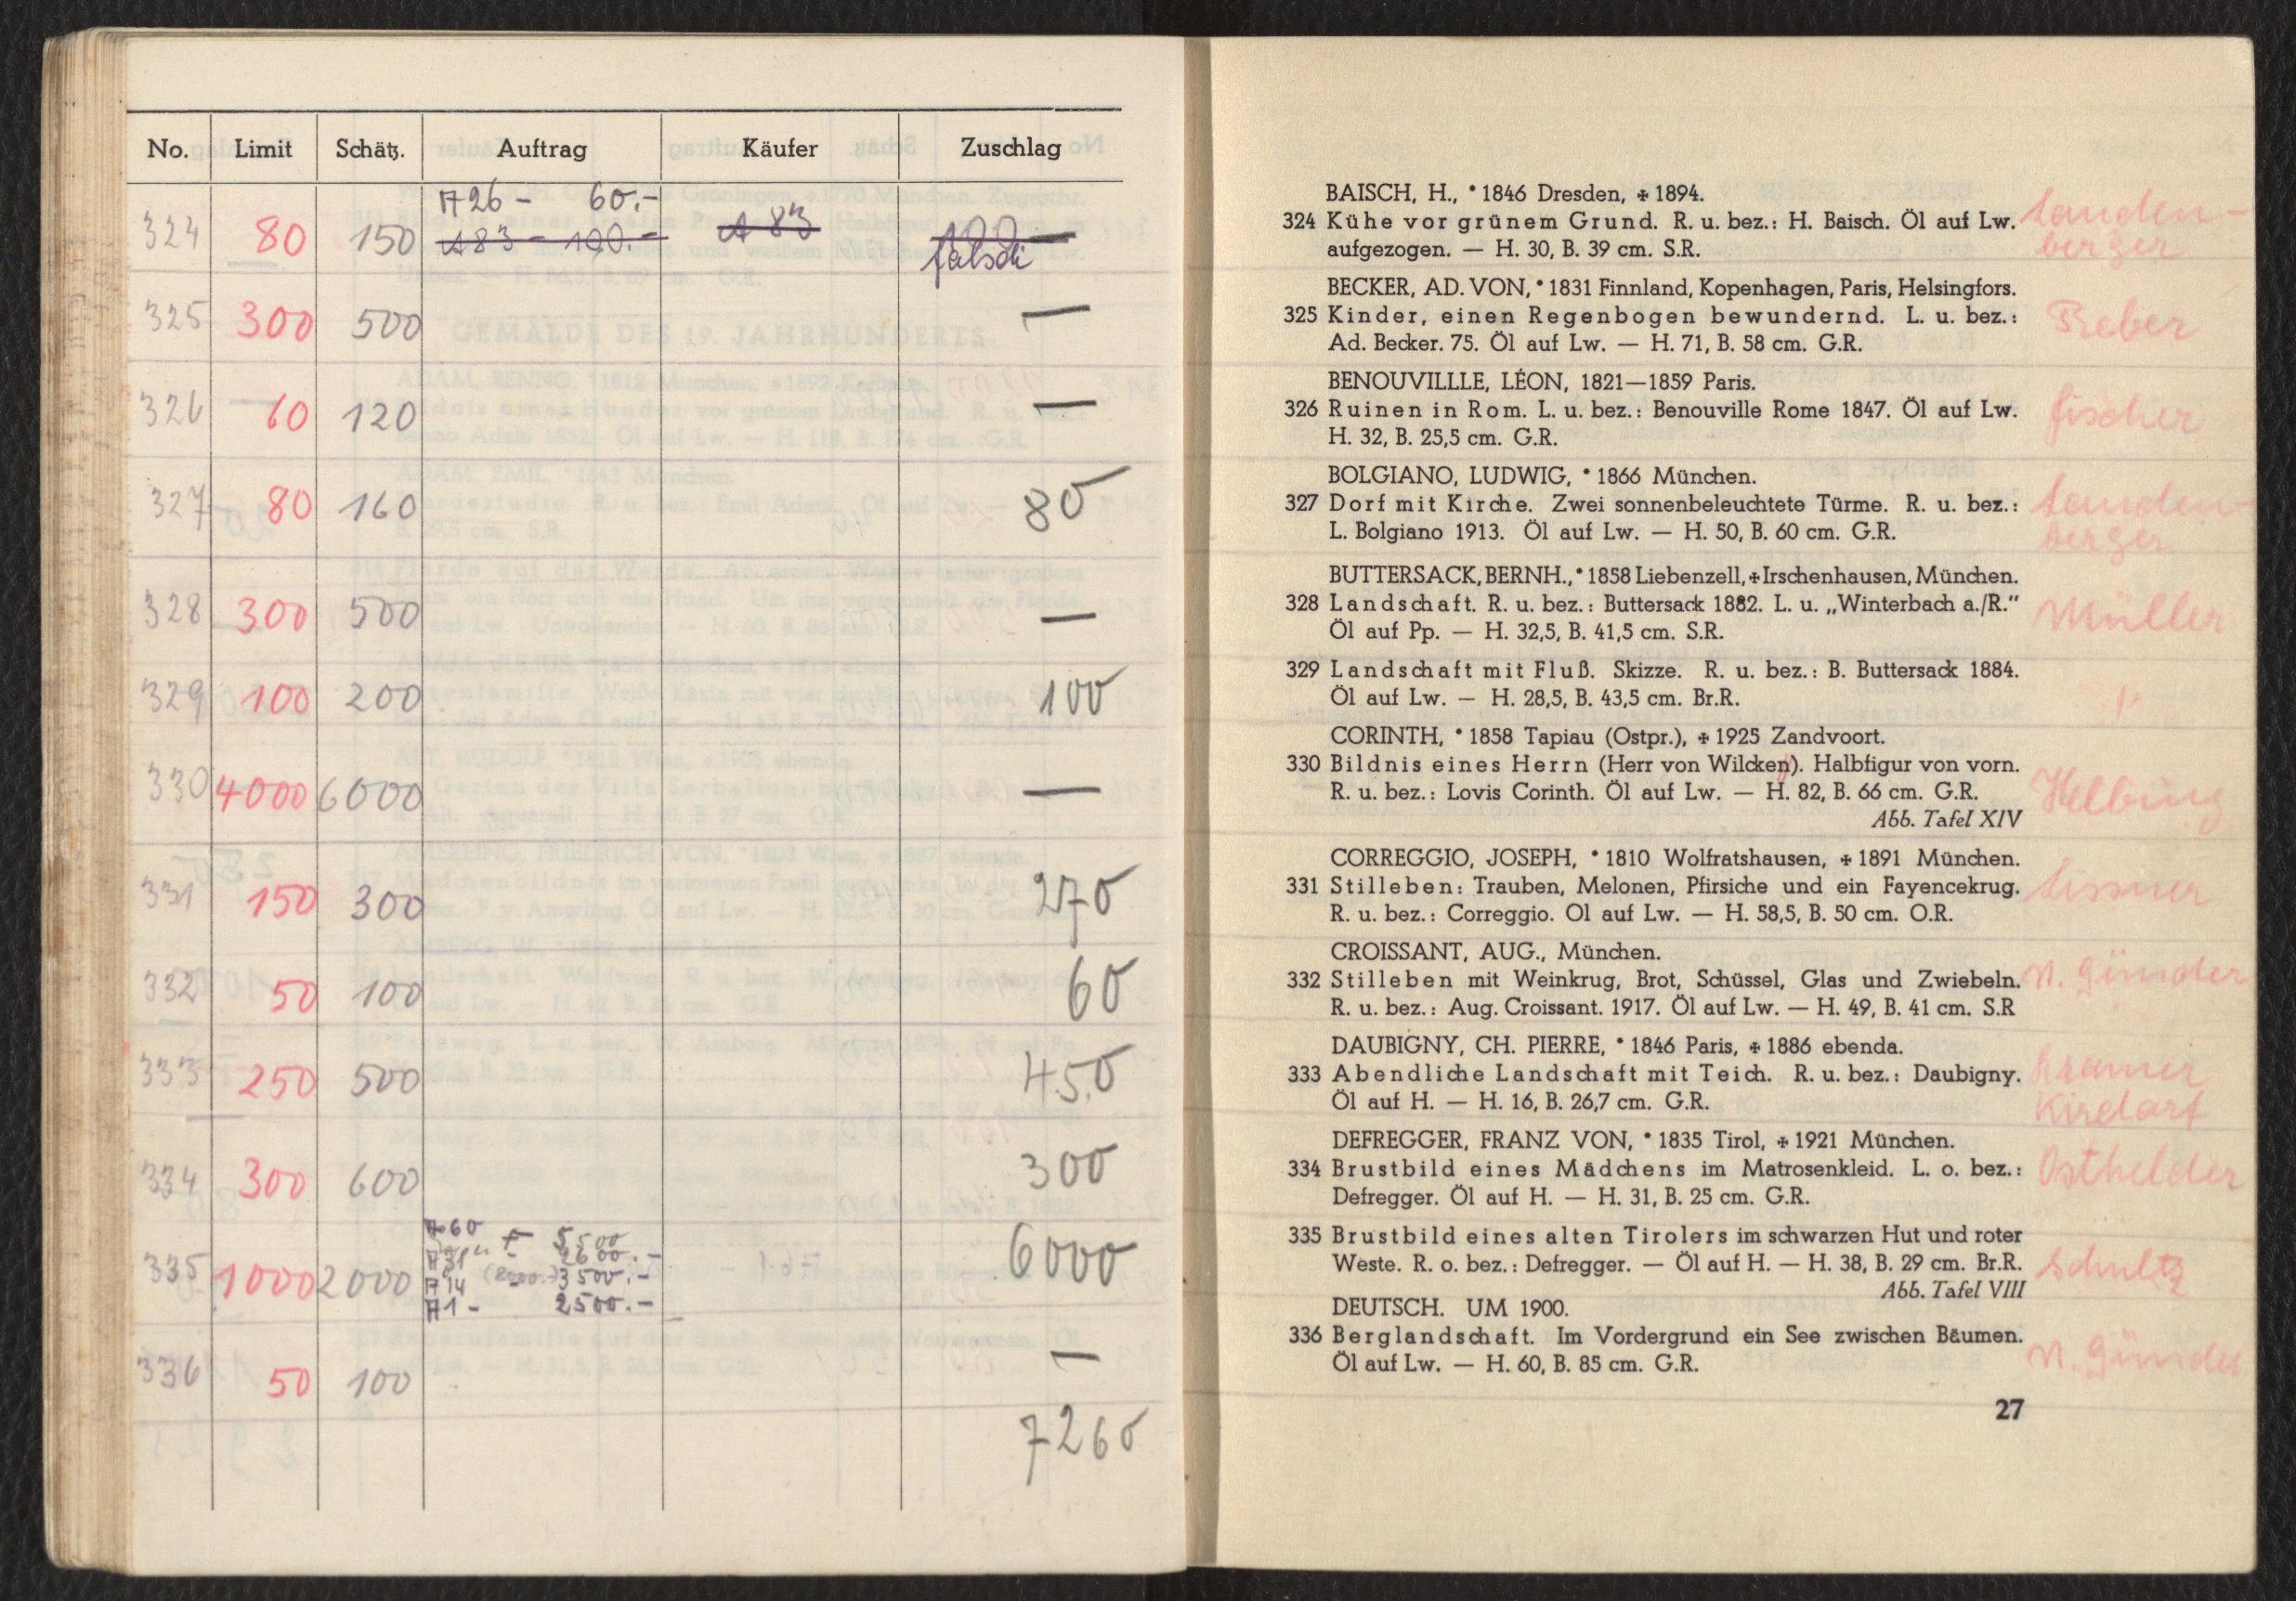 No. Limit Schätz. Auftrag Käufer Zuschlag
A26 - 60.-
324 80 150 A83 - 100.- A 83 100 —
falsch
325 300 500 —
326 60 120 —
327 80 160 80
328 300 500 —
329 100 200 100
330 4000 6000 —
331 150 300 270
332 50 100 60
333 250 500 450
334 300 600 300
A60 - 5500
335 1000 2000 A31 - 2600.- 6000
A14 - 3500.-
A1 - 2500.-
336 50 100 —
7260
BAISCH, H., * 1846 Dresden, ✠ 1894.
324 Kühe vor grünem Grund. R. u. bez.: H. Baisch. Öl auf Lw. Landen-
aufgezogen. — H. 30, B. 39 cm. S.R. berger
BECKER, AD. VON, * 1831 Finnland, Kopenhagen, Paris, Helsingfors.
325 Kinder, einen Regenbogen bewundernd. L. u. bez.: Reber
Ad. Becker. 75. Öl auf Lw. — H. 71, B. 58 cm. G.R.
BENOUVILLLE, LÉON, 1821—1859 Paris.
326 Ruinen in Rom. L. u. bez.: Benouville Rome 1847. Öl auf Lw. Fischer
H. 32, B. 25,5 cm. G.R.
BOLGIANO, LUDWIG, * 1866 München.
327 Dorf mit Kirche. Zwei sonnenbeleuchtete Türme. R. u. bez.: Landen-
L. Bolgiano 1913. Öl auf Lw. — H. 50, B. 60 cm. G.R. berger
BUTTERSACK, BERNH., * 1858 Liebenzell, ✠ Irschenhausen, München.
328 Landschaft. R. u. bez.: Buttersack 1882. L. u. „Winterbach a./R.“ Müller
Öl auf Pp. — H. 32,5, B. 41,5 cm. S.R.
329 Landschaft mit Fluß. Skizze. R. u. bez.: B. Buttersack 1884. "
Öl auf Lw. — H. 28,5, B. 43,5 cm. Br.R.
CORINTH, * 1858 Tapiau (Ostpr.), ✠ 1925 Zandvoort.
330 Bildnis eines Herrn (Herr von Wilcken). Halbfigur von vorn. Helbing
R. u. bez.: Lovis Corinth. Öl auf Lw. — H. 82, B. 66 cm. G.R.
Abb. Tafel XIV
CORREGGIO, JOSEPH, * 1810 Wolfratshausen, ✠ 1891 München.
331 Stilleben: Trauben, Melonen, Pfirsiche und ein Fayencekrug. Lissner
R. u. bez.: Correggio. Ol auf Lw. — H. 58,5, B. 50 cm. O.R.
CROISSANT, AUG., München.
332 Stilleben mit Weinkrug, Brot, Schüssel, Glas und Zwiebeln. N. Günder
R. u. bez.: Aug. Croissant. 1917. Öl auf Lw. — H. 49, B. 41 cm. S.R
DAUBIGNY, CH. PIERRE, * 1846 Paris, ✠ 1886 ebenda.
333 Abendliche Landschaft mit Teich. R. u. bez.: Daubigny. Kramer
Öl auf H. — H. 16, B. 26,7 cm. G.R. Kirdorf
DEFREGGER, FRANZ VON, * 1835 Tirol, ✠ 1921 München.
334 Brustbild eines Mädchens im Matrosenkleid. L. o. bez.: Osthelder
Defregger. Öl auf H. — H. 31, B. 25 cm. G.R.
335 Brustbild eines alten Tirolers im schwarzen Hut und roter
Weste. R. o. bez.: Defregger. — Öl auf H. — H. 38, B. 29 cm. Br.R. Schultz
Abb. Tafel VIII
DEUTSCH. UM 1900.
336 Berglandschaft. Im Vordergrund ein See zwischen Bäumen. N. Günder
Öl auf Lw. — H. 60, B. 85 cm. G.R.
27